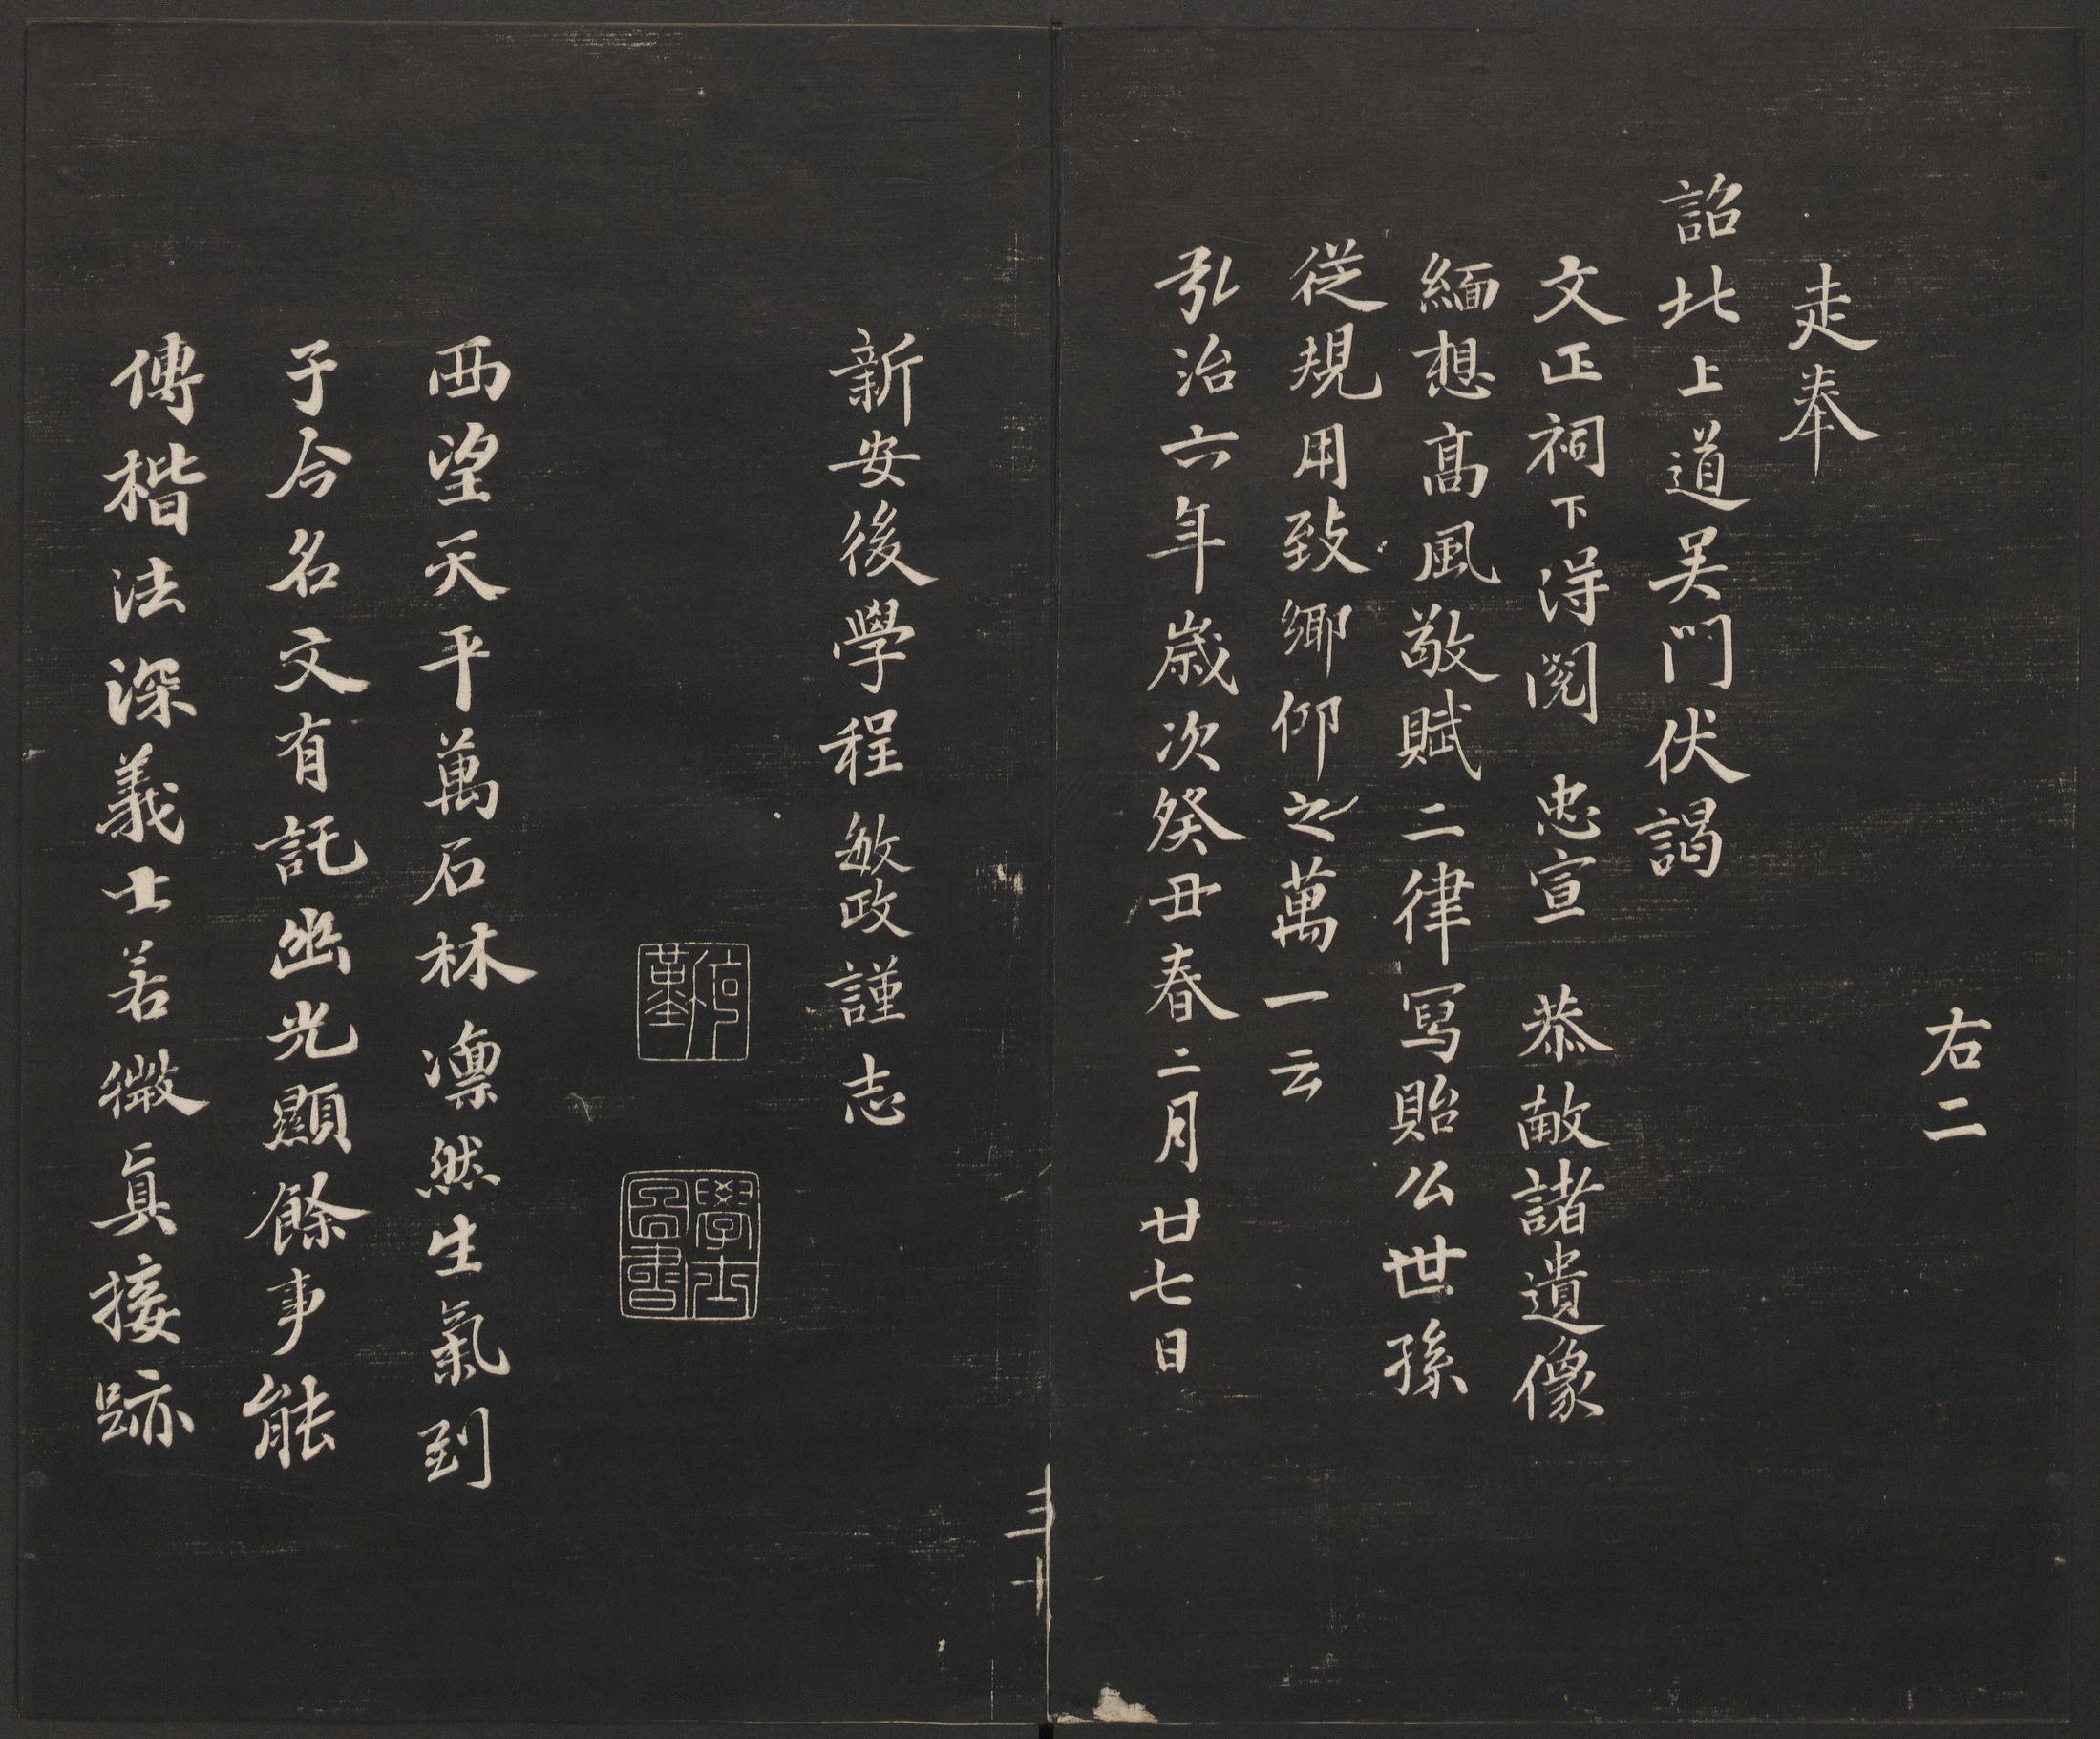 右二
走奉
詔北上道吴門伏謁
文正祠下得閲 忠宣 恭敏諸遺像
緬想髙風敬賦二律寫貽公世孫
從規用致鄉仰之萬一云
弘治六年歲次癸丑春二月廿七日
新安後學程敏政謹志
學士圖書
西望天平萬石林凛然生氣到
于今名文有託幽光顯餘事能
傳楷法深義士若微真接跡